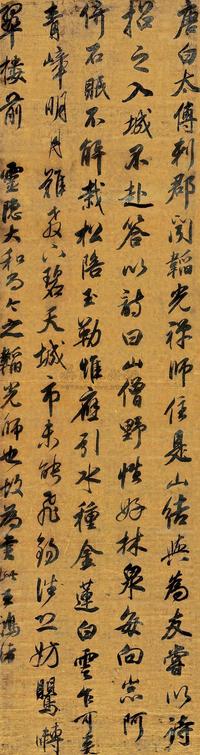 唐白太傅刺郡閱韜光禪師住是山結與為友嘗以詩
招之入城不赴答以詩曰山僧野性好林泉每向岩阿
倚石眠不解栽松陪玉勒惟應引水種金蓮白雲乍可來
青嶂明月難教下碧天城市未能飛錫往恐妨鶯囀
翠樓前 靈隱大和尚今之韜光師也故為書此 王鴻緒